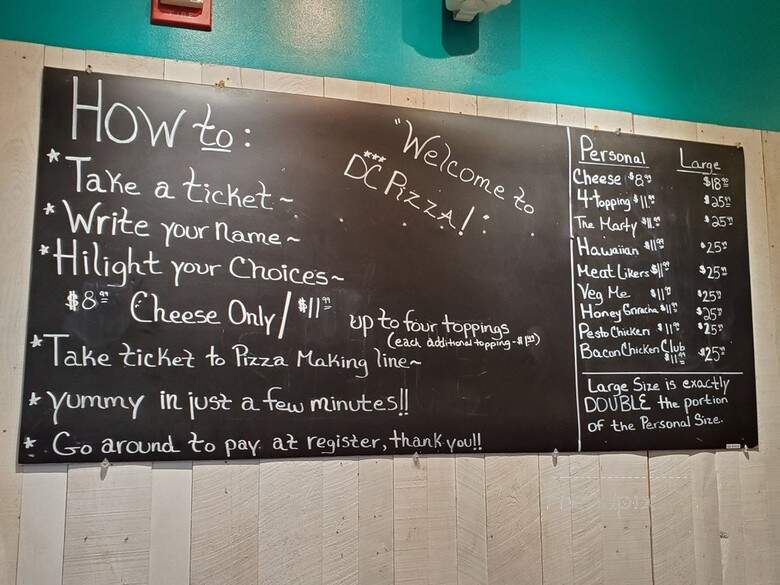 How to:
* Take a ticket ~
* Write your name ~
* Hilight your Choices ~
$8.99 Cheese Only / $11.99 up to four toppings
(each additional topping - $1.99)
* Take ticket to Pizza Making line ~
* yummy in just a few minutes!!
* Go around to pay at register, thank you!!
"Welcome to
DC Pizza!"
Personal Large
Cheese $8.99 $18.99
4-topping $11.99 $25.99
The Marty $11.99 $25.99
Hawaiian $11.99 $25.99
Meat Likers $11.99 $25.99
Veg Me $11.99 $25.99
Honey Griracha $11.99 $25.99
Pesto Chicken $11.99 $25.99
Bacon Chicken Club
$11.99 $25.99
Large Size is exactly
DOUBLE the portion
of the Personal Size.